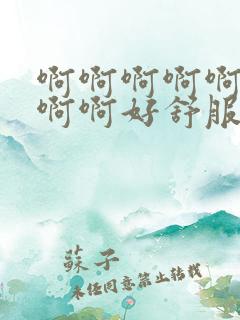 啊啊啊啊啊
啊啊好舒服
蘇子
未经同意禁止转载